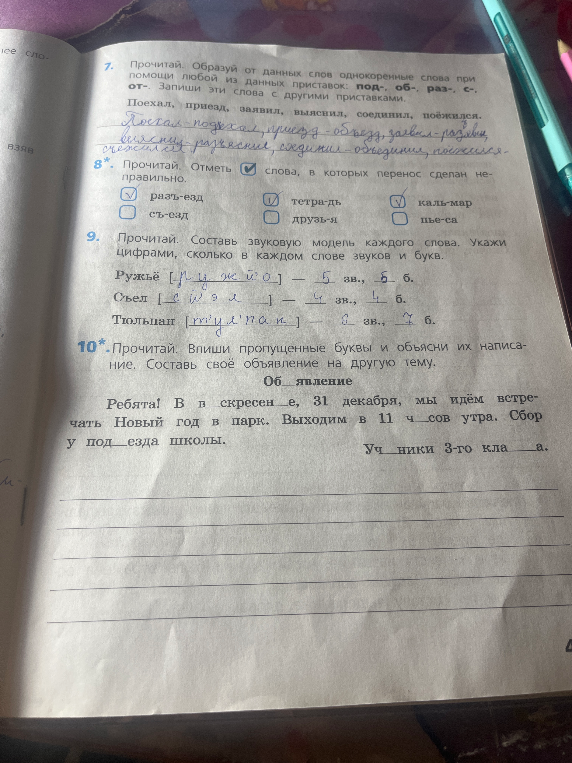 ее сло-
взяв
7. Прочитай. Образуй от данных слов однокоренные слова при
помощи любой из данных приставок: под-, об-, раз-, с-,
от-. Запиши эти слова с другими приставками.
Поехал, приезд, заявил, выяснил, соединил, поёжился.
Поехал - подъехал, приезд - объезд, заявил -
выяснил - разъяснил, соединил - объединил, поежился -
съежился
8*. Прочитай. Отметь ✓ слова, в которых перенос сделан не-
правильно.
✓ разъ-езд ✓ тетра-дь ✓ каль-мар
съ-езд друзь-я пье-са
9. Прочитай. Составь звуковую модель каждого слова. Укажи
цифрами, сколько в каждом слове звуков и букв.
Ружьё [ р у ж й о ] — 5 зв., 5 б.
Съел [ с й э л ] — 4 зв., 4 б.
Тюльпан [ т'у л'п а н ] — зв., 7 б.
10*. Прочитай. Впиши пропущенные буквы и объясни их написа-
ние. Составь своё объявление на другую тему.
Об__явление
Ребята! В в скресен__е, 31 декабря, мы идём встре-
чать Новый год в парк. Выходим в 11 ч__сов утра. Сбор
у под__езда школы.
Уч__ники 3-го кла__а.